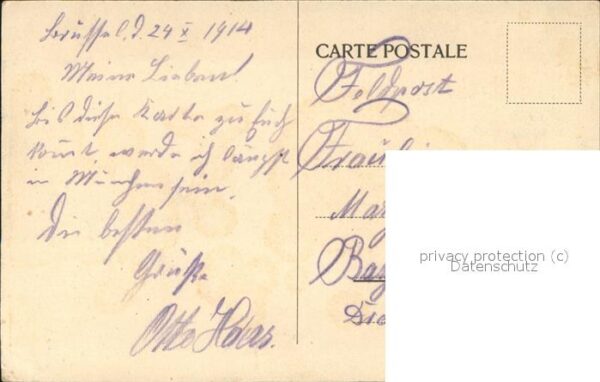 Brüssel, d. 24 X 1914
Meine Lieben!
bis diese Karte zu Euch
kommt, werde ich längst
in München sein.
Die besten
Grüße
Otto Haas.
CARTE POSTALE
Feldpost
privacy protection (c)
Datenschutz